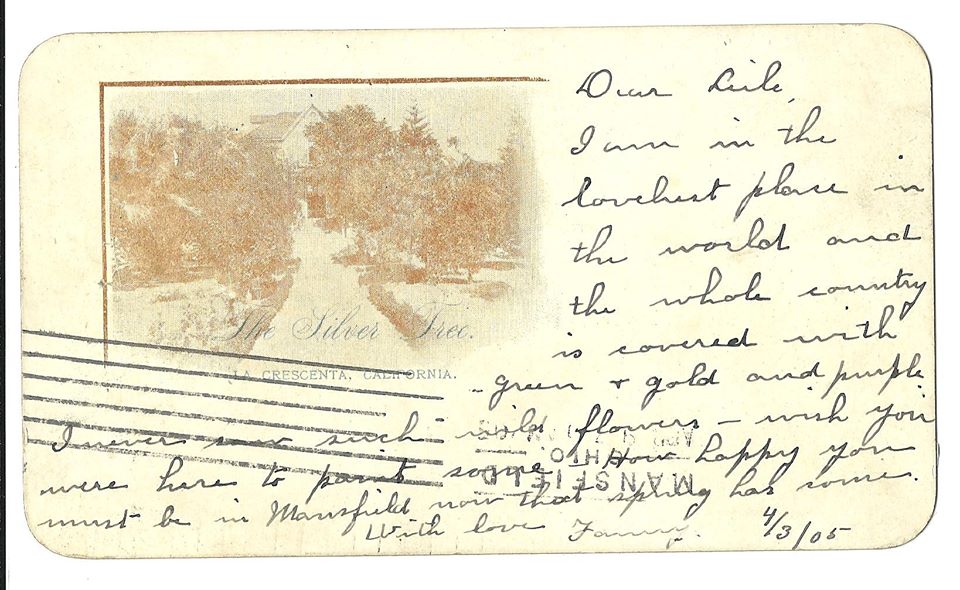 Dear
I am in the
loveliest place in
the world and
the whole country
is covered with
green + gold and purple
wild flowers – wish you
I never saw such
were here to paint some. How happy you
must be in Mansfield now that spring has come.
With love Fanny. 4/3/05
The Silver Tree.
LA CRESCENTA, CALIFORNIA.
MANSFIELD
OHIO.